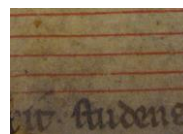 xit. studens